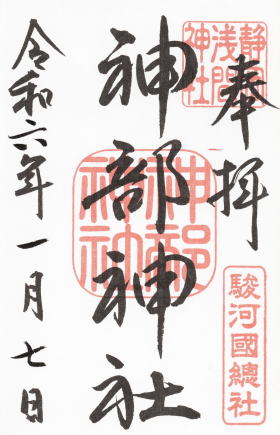 奉拝
静岡
浅間
神社
神部神社
神部
神社
駿河國總社
令和六年一月七日